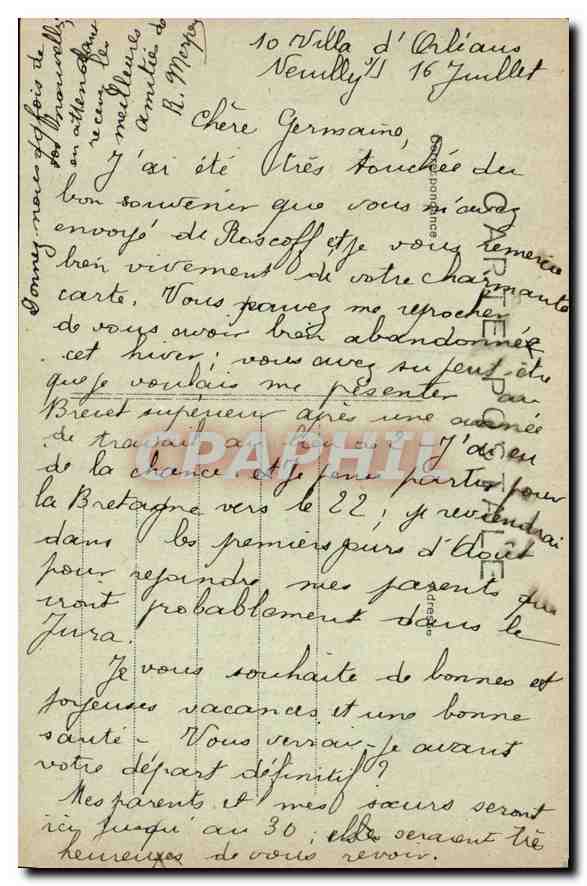 10 Villa d'Orléans
Neuilly s/S 16 Juillet
Chère Germaine,
J'ai été très touchée du
bon souvenir que vous m'avez
envoyé de Roscoff et je vous remercie
bien vivement de votre charmante
carte. Vous pouvez me reprocher
de vous avoir bien abandonnée
cet hiver; vous avez su peut être
que je voulais me présenter au
Brevet supérieur après une année
de travail au lieu de 2 J'ai eu
de la chance et je peux partir pour
la Bretagne vers le 22; je reviendrai
dans les premiers jours d'Août
pour rejoindre mes parents qui
iront probablement dans le
Jura.
Je vous souhaite de bonnes et
joyeuses vacances et une bonne
santé - Vous verrai-je avant
votre départ définitif?
Mes parents et mes sœurs seront
ici jusqu'au 30; elles seraient très
heureuses de vous revoir.
Donnez nous qq fois de
vos nouvelles
en attendant
recevez les
meilleures
amitiés de
R.
Correspondance
CARTE POSTALE
Adresse
CPAPHIL